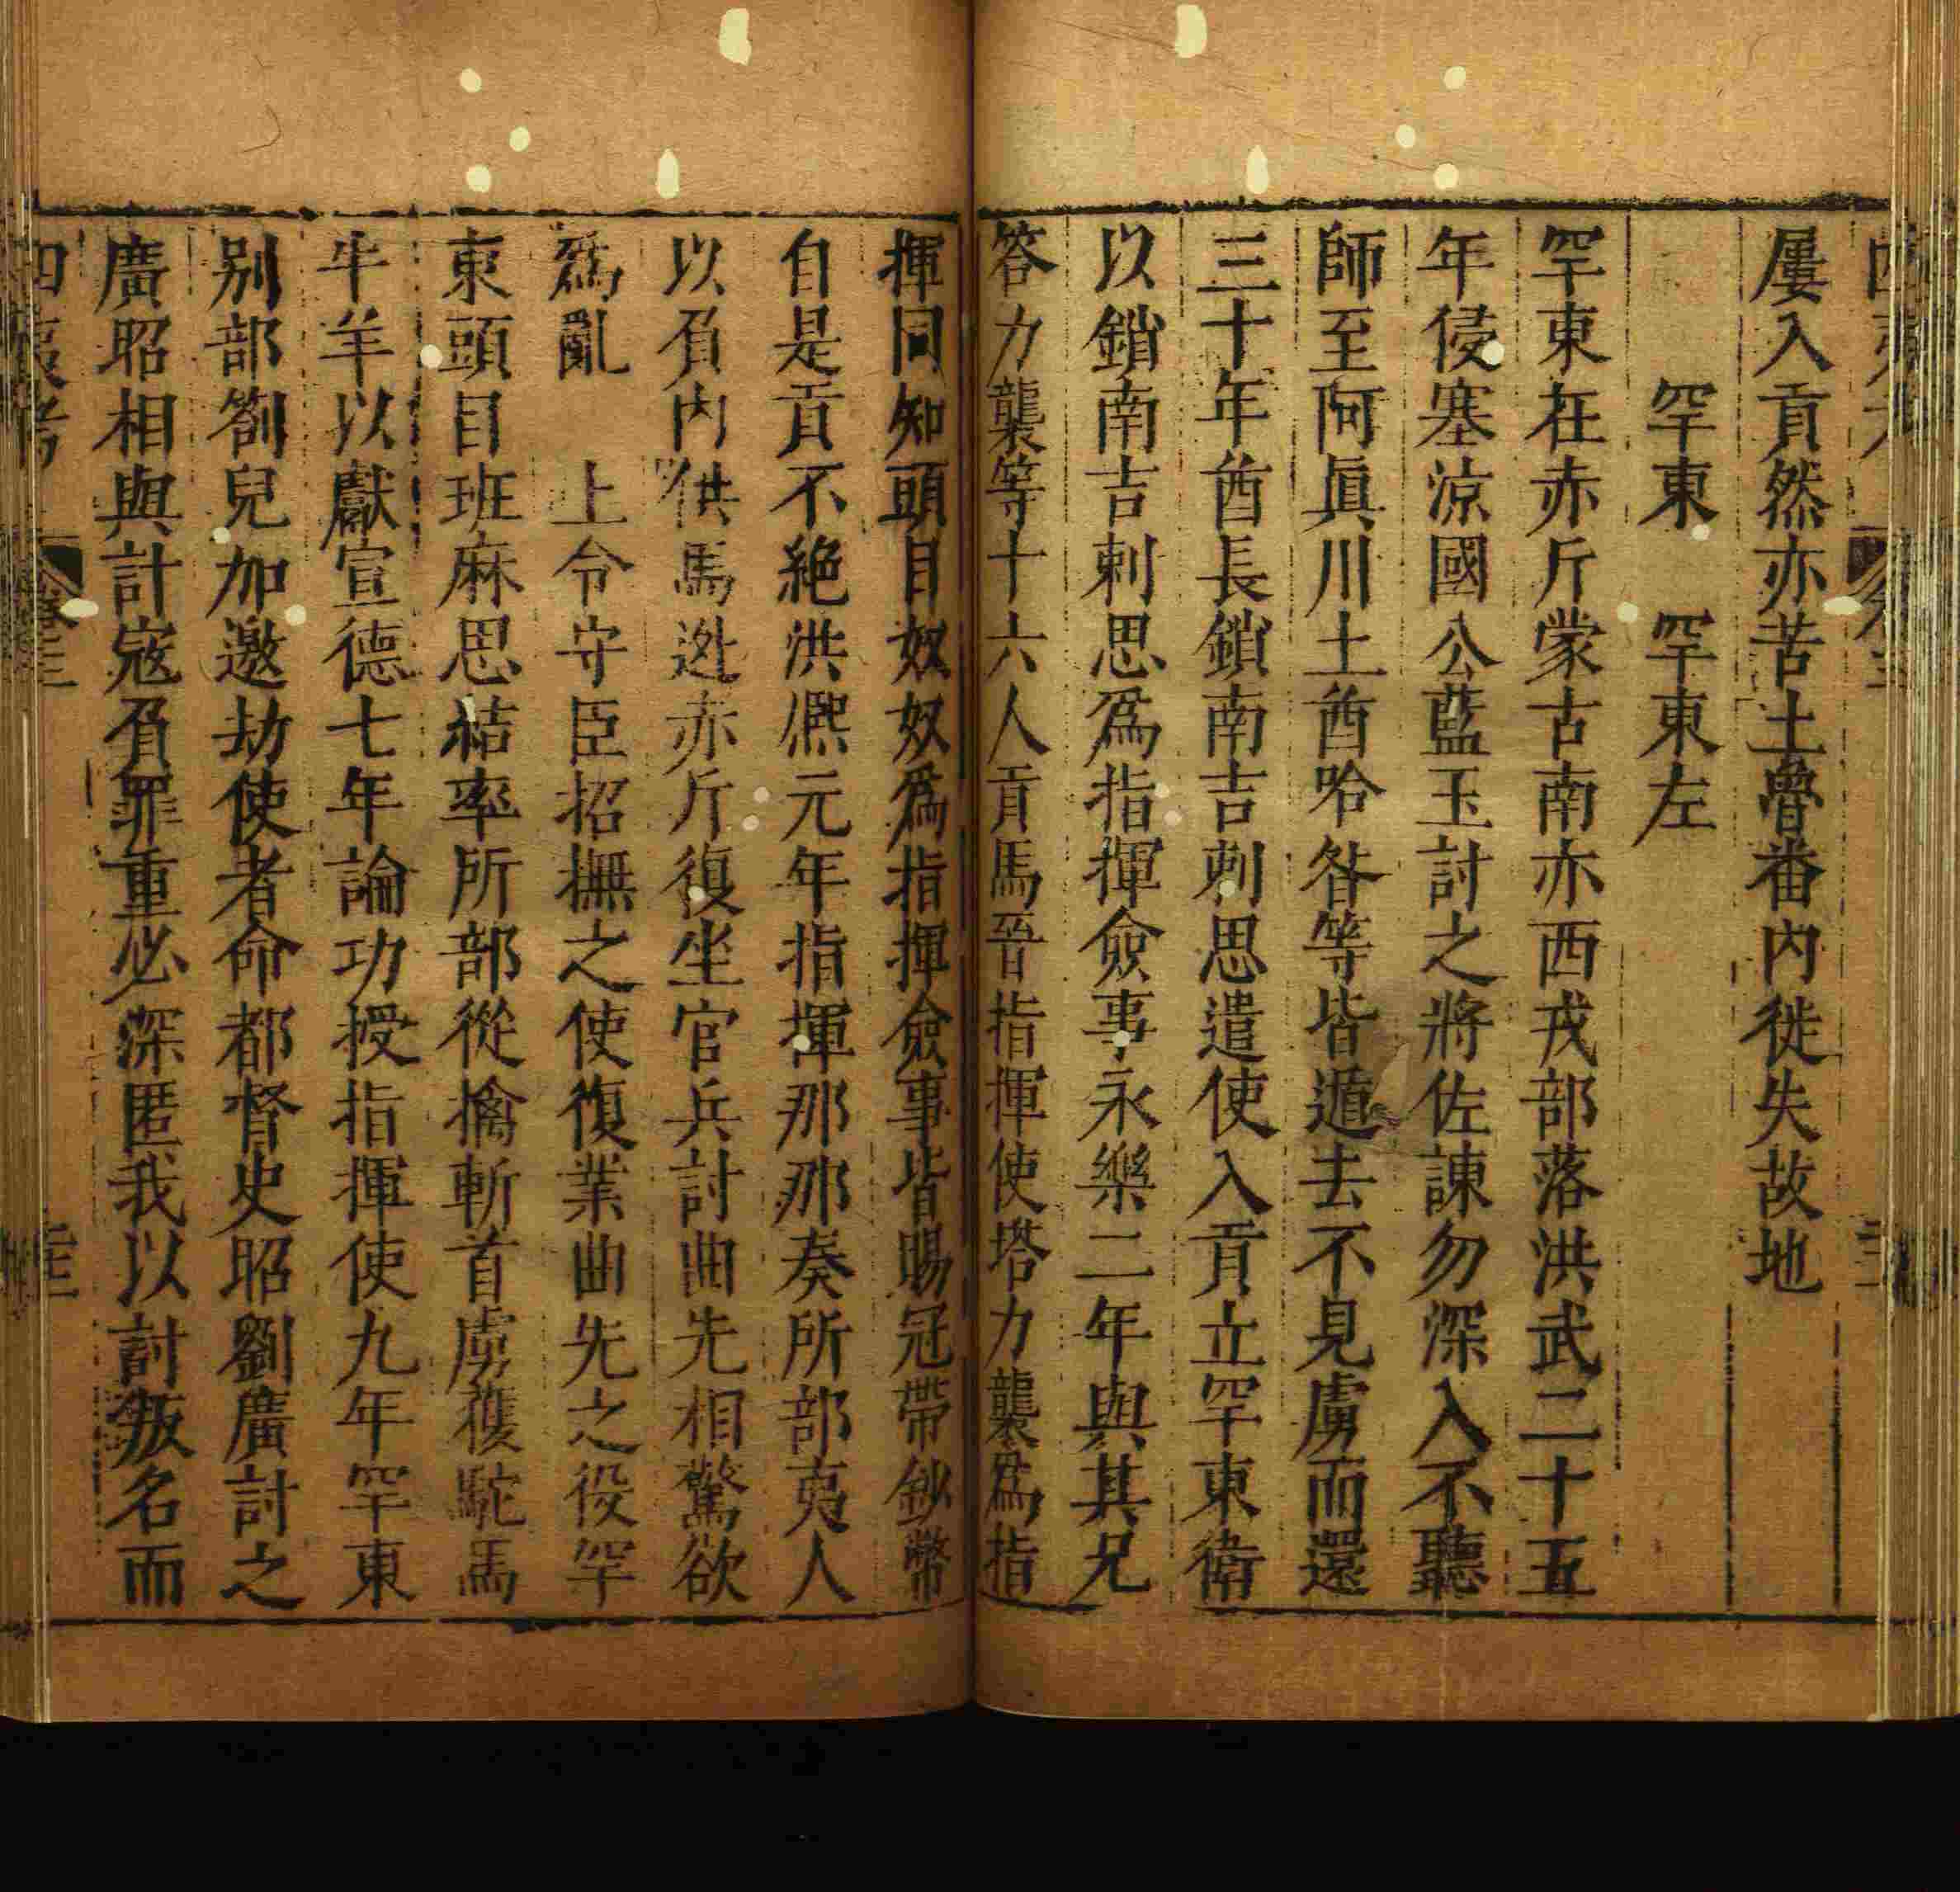 屢入貢然亦苦土魯番內徙失故地
罕東　罕東左
罕東在赤斤蒙古南亦西戎部落洪武二十五
年侵塞涼國公藍玉討之將佐諫勿深入不聽
師至阿眞川土酋哈昝等皆遁去不見虜而還
三十年酋長鎖南吉剌思遣使入貢立罕東衛
以鎖南吉剌思爲指揮僉事永樂二年與其兄
答力襲等十六人貢馬晉指揮使塔力襲爲指
揮同知頭目奴奴爲指揮僉事皆賜冠帶鈔幣
自是貢不絶洪熈元年指揮那那奏所部夷人
以負內供馬逃赤斤復坐官兵討曲先相驚欲
爲亂　上令守臣招撫之使復業曲先之役罕
東頭目班麻思結率所部從擒斬首虜獲駝馬
牛羊以獻宣德七年論功授指揮使九年罕東
别部劄兒加邀劫使者命都督史昭劉廣討之
廣昭相與計寇負罪重必深匿我以討叛名而
四夷考